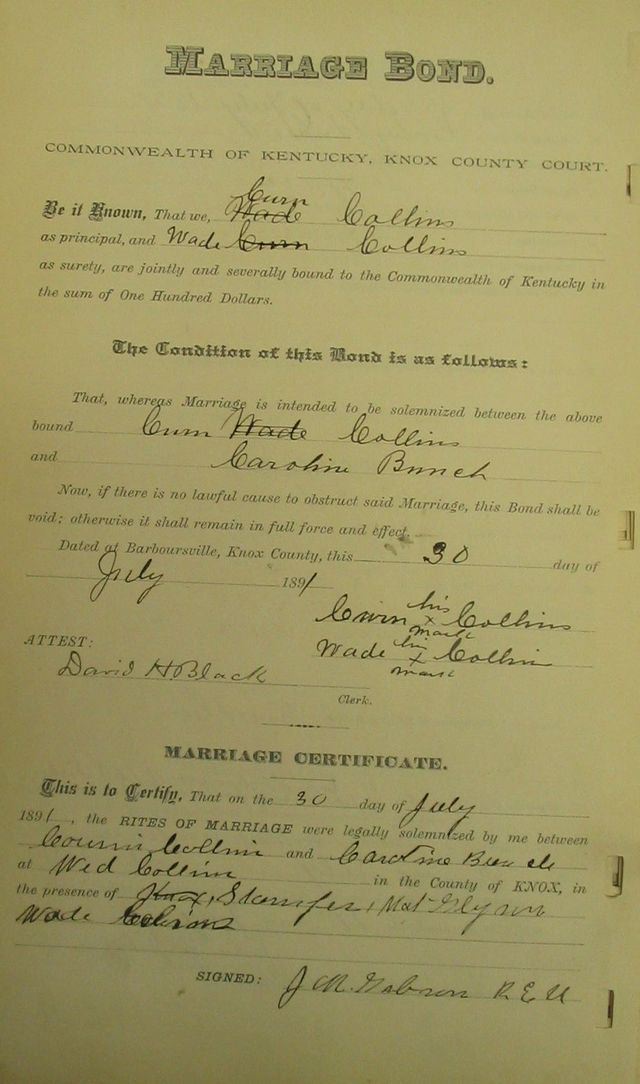 MARRIAGE BOND.
COMMONWEALTH OF KENTUCKY, KNOX COUNTY COURT.
Curn
Be it Known, That we, Wade Collins
as principal, and Wade Curn Collins
as surety, are jointly and severally bound to the Commonwealth of Kentucky in
the sum of One Hundred Dollars.
The Condition of this Bond is as follows:
That, whereas Marriage is intended to be solemnized between the above
bound Curn Wade Collins
and Caroline Bunch
Now, if there is no lawful cause to obstruct said Marriage, this Bond shall be
void; otherwise it shall remain in full force and effect.
Dated at Barboursville, Knox County, this 30 day of
July 1891
his
Curn x Collins
mark
his
Wade x Collin
mark
ATTEST:
David H. Black
Clerk.
MARRIAGE CERTIFICATE.
This is to Certify, That on the 30 day of July
1891, the RITES OF MARRIAGE were legally solemnized by me between
Collin and Caroline Bunch
at Wed Collin in the County of KNOX, in
the presence of
Wade Collins
SIGNED: J M